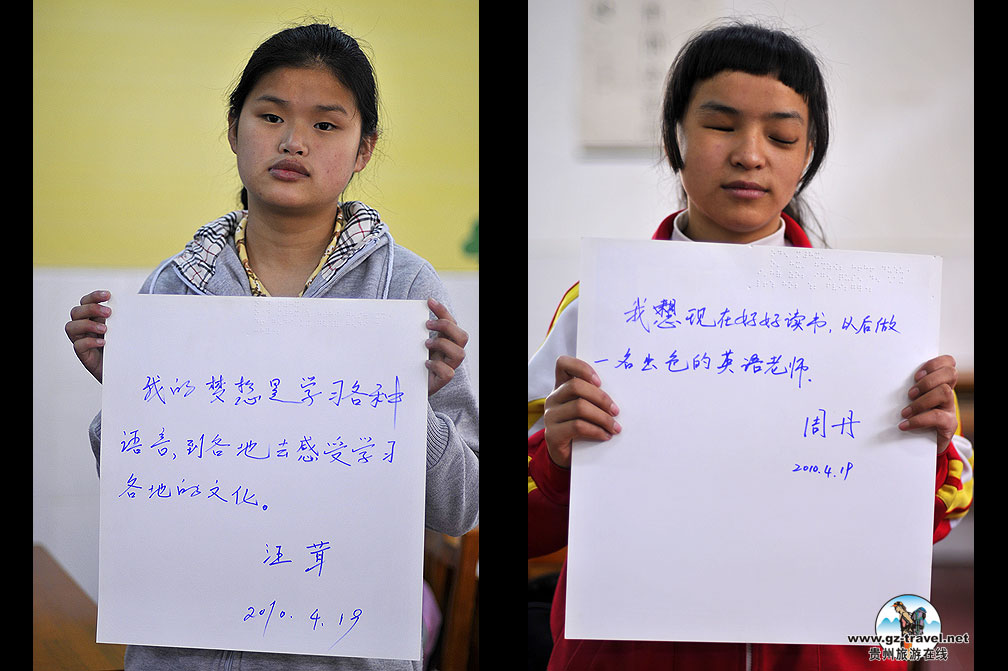 我的梦想是学习各种
语言,到各地去感受学习
各地的文化。
汪茸
2010.4.19
我想现在好好读书,以后做
一名出色的英语老师.
周丹
2010.4.19
www.gz-travel.net
贵州旅游在线